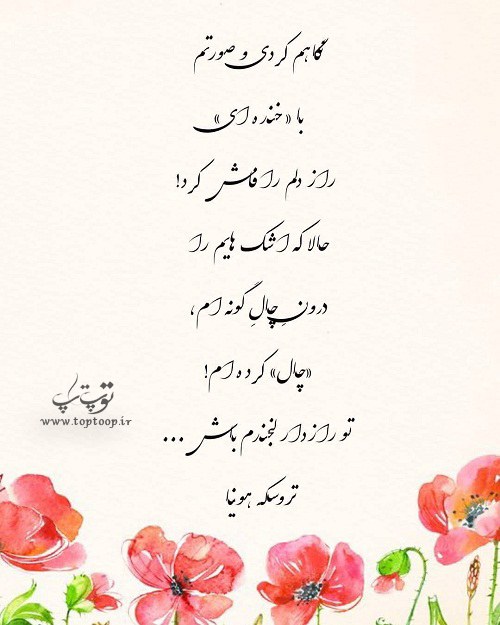 نگاهم کردی و صورتم
با «خنده ای»
راز دلم را فاش کرد!
حالا که اشک هایم را
درونِ چالِ گونه ام،
«چال» کرده ام!
تو رازدار لبخندم باش ...
تروسکه هونیا
توپ تاپ
www.toptoop.ir